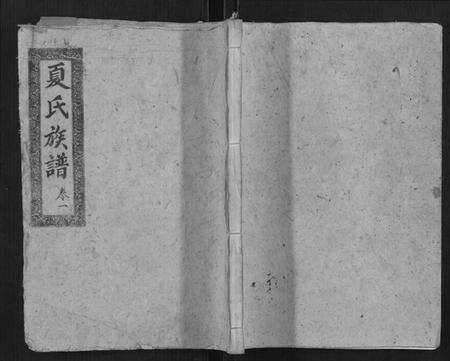 夏氏族譜
卷一